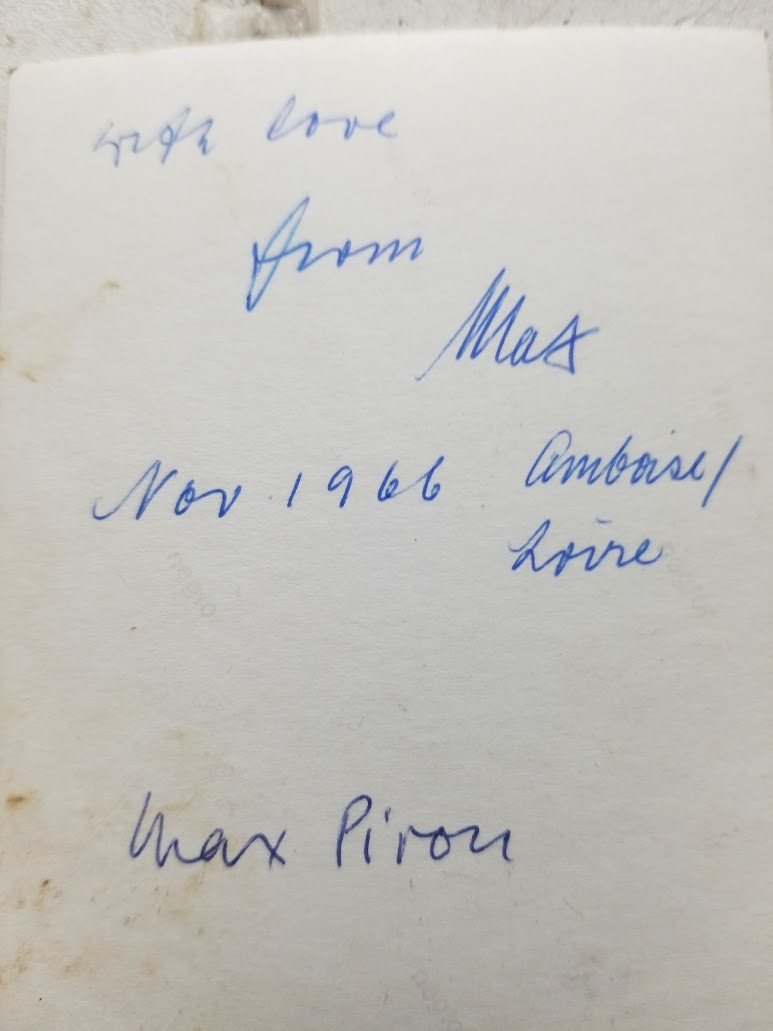 with love
from
Max
Nov. 1966 Amboise/
Loire
Max Piron